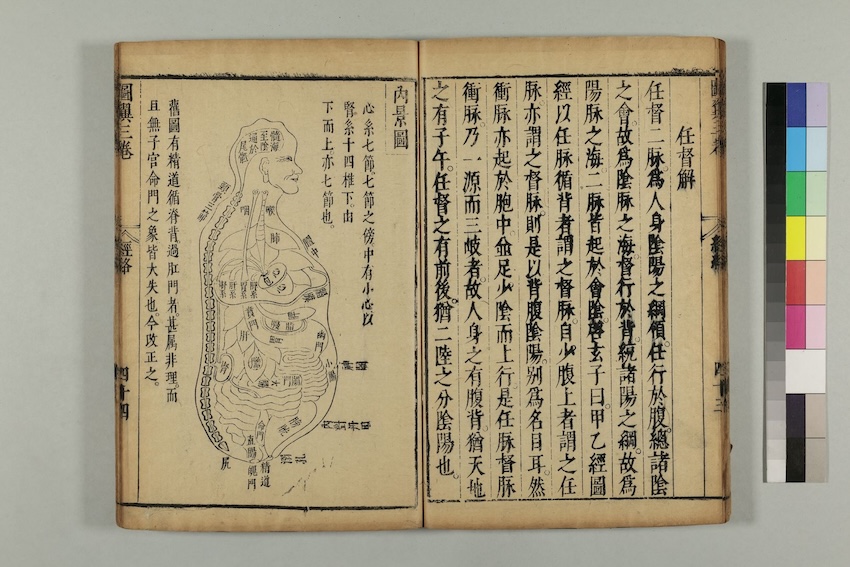 圖翼三卷
經絡
四十三
任督解
任督二脉爲人身陰陽之綱領任行於腹總諸陰
之會故爲陰脉之海督行於背統諸陽之綱故爲
陽脉之海二脉皆起於會陰啓玄子曰甲乙經圖
經以任脉循背者謂之督脉自少腹上者謂之任
脉亦謂之督脉則是以背腹陰陽别爲名目耳然
衝脉亦起於胞中並足少陰而上行是任脉督脉
衝脉乃一源而三岐者故人身之有腹背猶天地
之有子午任督之有前後猶二陸之分陰陽也
內景圖
心系七節七節之傍中有小心以
腎系十四椎下由
下而上亦七節也
髓海
至陰
通於
尾骶
咽
喉
肺
膻中
膈膜
脾系
胃系
肝系
腎系
賁門
肝
胃
幽門
大腸
闌門
直腸
魄門
精道
尻
舊圖有精道循脊背過肛門者甚屬非理而
且無子宮命門之象皆大失也今改正之
圖翼三卷
經絡
四十四